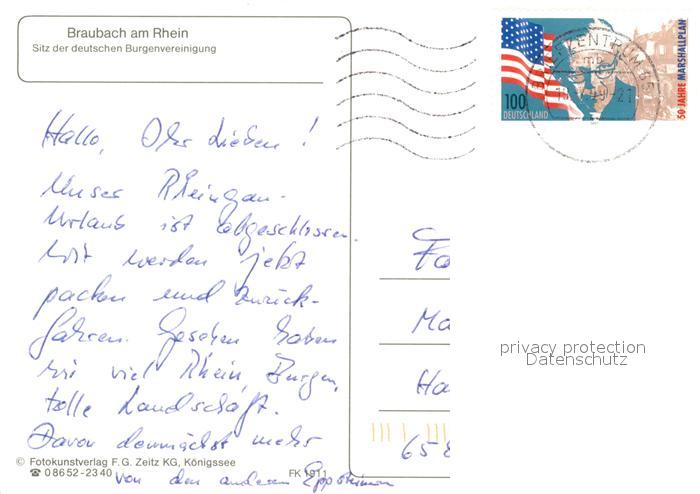 Braubach am Rhein
Sitz der deutschen Burgenvereinigung
Hallo, Ihr Lieben!
Unser Rheingau-
Urlaub ist abgeschlossen.
Wir werden jetzt
packen und zurück-
fahren. Gesehen haben
wir viel Rhein, Burgen,
tolle Landschaft.
Davon demnächst mehr
von den anderen Eppsteinern
© Fotokunstverlag F. G. Zeitz KG, Königssee
☎ 0 86 52 - 23 40
FK 1911
100
DEUTSCHLAND
50 JAHRE MARSHALLPLAN
BRIEFZENTRUM 65
Fa
Ma
Ha
65
privacy protection
Datenschutz